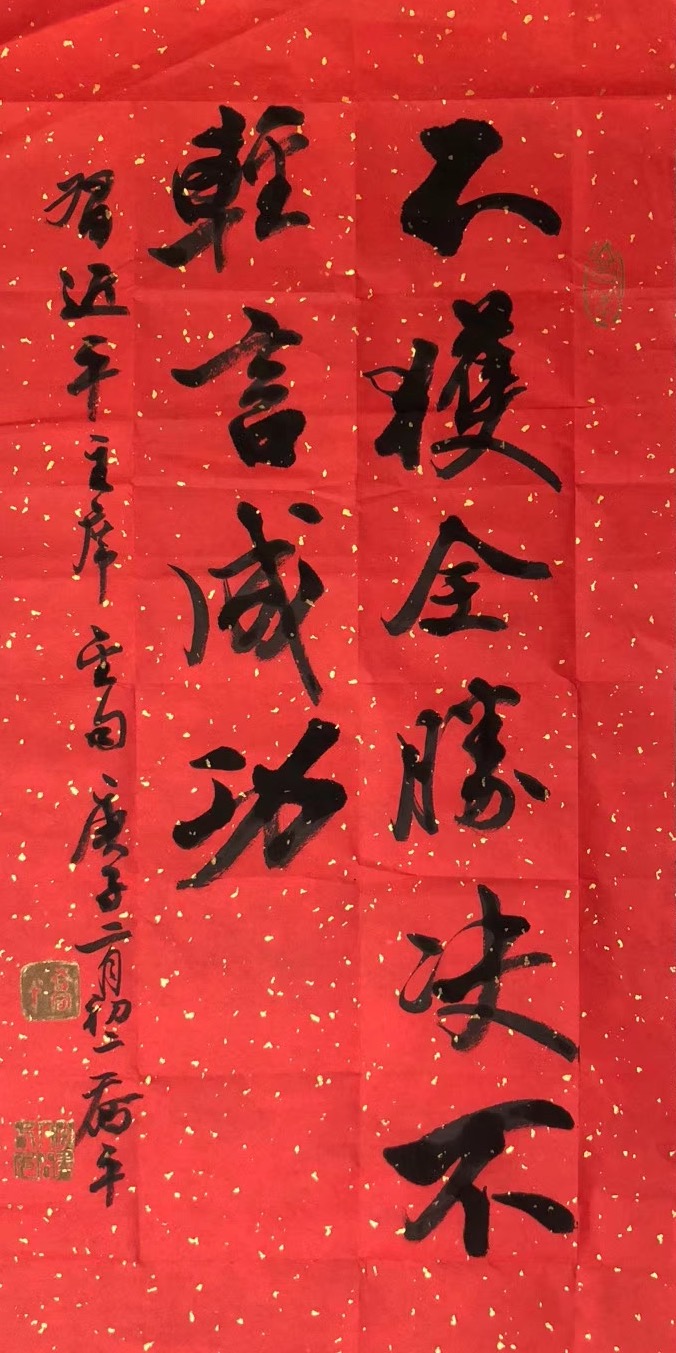 不獲全勝决不
輕言成功
習近平主席金句庚子二月初一